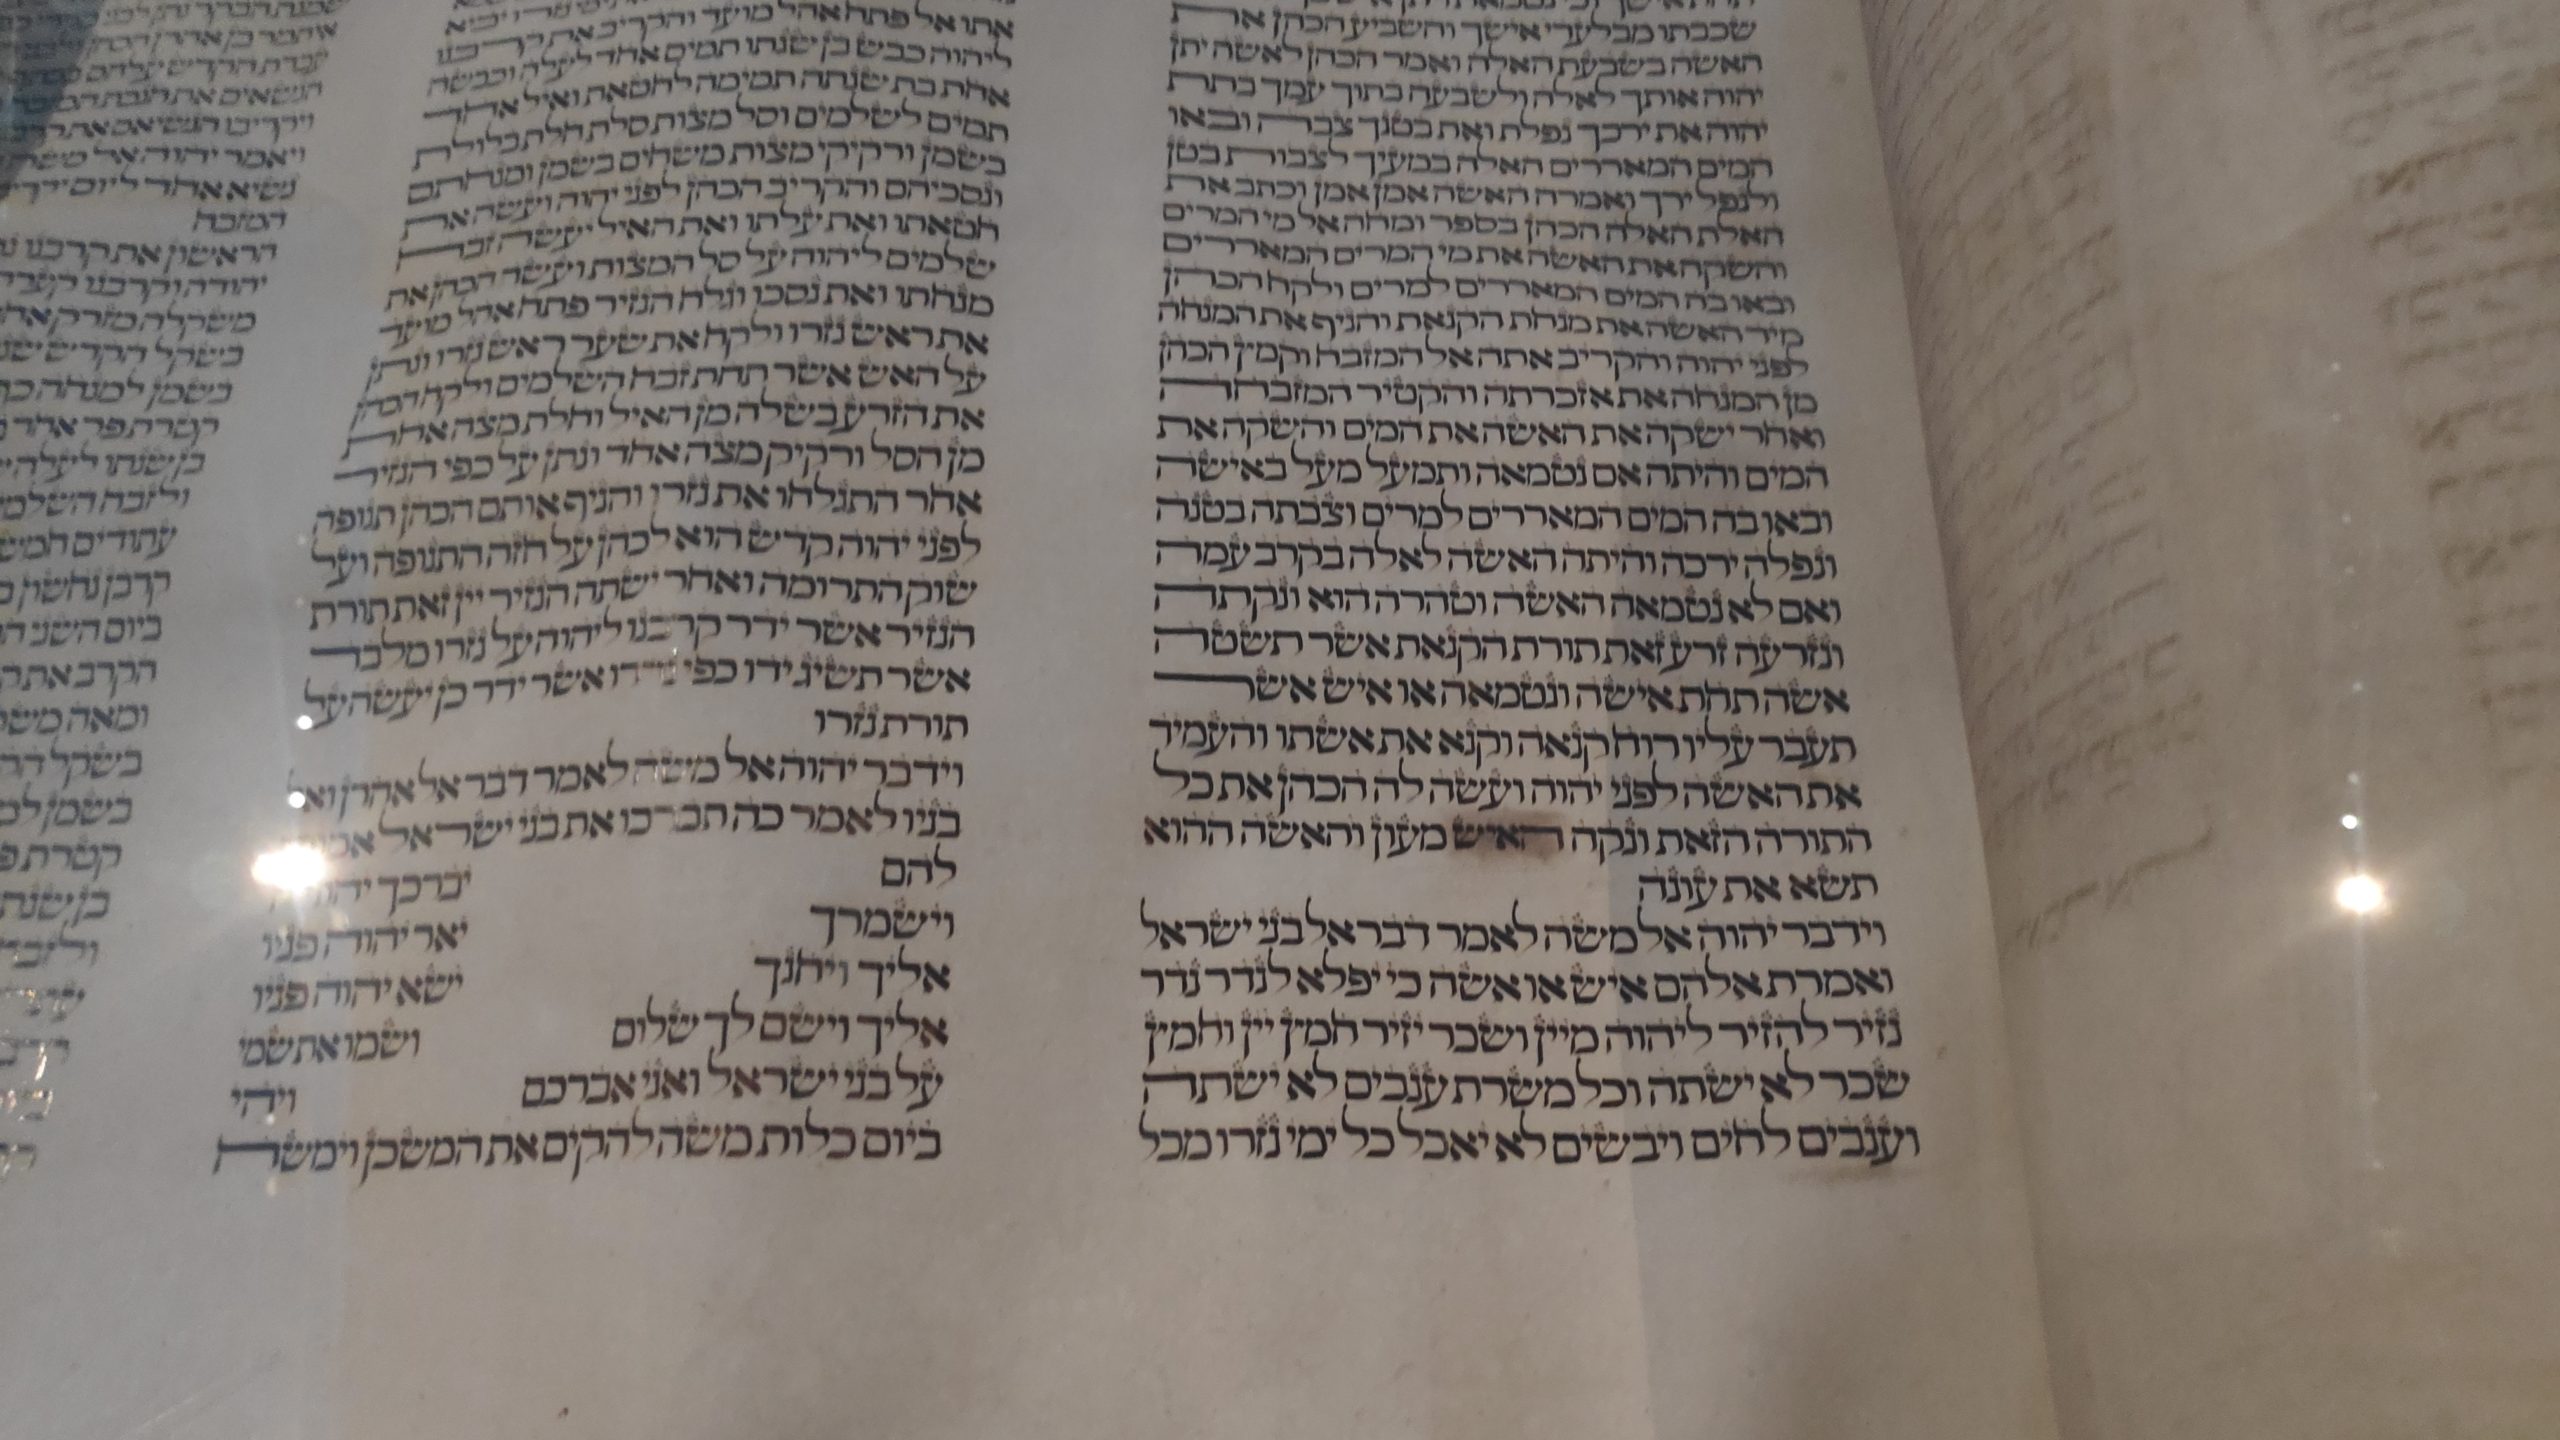 שכבתו מבלעדי אישך והשביע הכהן את
האשה בשבעת האלה ואמר הכהן לאשה יתן
יהוה אותך לאלה ולשבעה בתוך עמך בתת
יהוה את ירכך נפלת ואת בטנך צבה ובאו
המים המאררים האלה במעיך לצבות בטן
ולנפל ירך ואמרה האשה אמן אמן וכתב את
האלת האלה הכהן בספר ומחה אל מי המרים
והשקה את האשה את מי המרים המאררים
ובאו בה המים המאררים למרים ולקח הכהן
מיד האשה את מנחת הקנאת והניף את המנחה
לפני יהוה והקריב אתה אל המזבח וקמץ הכהן
מן המנחה את אזכרתה והקטיר המזבחה
ואחר ישקה את האשה את המים והשקה את
המים והיתה אם נטמאה ותמעל מעל באישה
ובאו בה המים המאררים למרים וצבתה בטנה
ונפלה ירכה והיתה האשה לאלה בקרב עמה
ואם לא נטמאה האשה וטהרה הוא ונקתה
ונזרעה זרע זאת תורת הקנאת אשר תשטה
אשה תחת אישה ונטמאה או איש אשר
תעבר עליו רוח קנאה וקנא את אשתו והעמיד
את האשה לפני יהוה ועשה לה הכהן את כל
התורה הזאת ונקה האיש מעון והאשה ההוא
תשא את עונה
וידבר יהוה אל משה לאמר דבר אל בני ישראל
ואמרת אלהם איש או אשה כי יפלא לנדר נדר
נזיר להזיר ליהוה מיין ושכר יזיר חמץ יין וחמץ
שכר לא ישתה וכל משרת ענבים לא ישתה
וענבים לחים ויבשים לא יאכל כל ימי נזרו מכל
אתו אל פתח אהל מועד והקריב את קרבנו
ליהוה כבש בן שנתו תמים אחד לעלה וכבשה
אחת בת שנתה תמימה לחטאת ואיל אחד
תמים לשלמים וסל מצות סלת חלת בלולת
בשמן ורקיקי מצות משחים בשמן ומנחתם
ונסכיהם והקריב הכהן לפני יהוה ועשה את
חטאתו ואת עלתו ואת האיל יעשה זבח
שלמים ליהוה על סל המצות ועשה הכהן את
מנחתו ואת נסכו וגלח הנזיר פתח אהל מועד
את ראש נזרו ולקח את שער ראש נזרו ונתן
על האש אשר תחת זבח השלמים ולקח הכהן
את הזרע בשלה מן האיל וחלת מצה אחת
מן הסל ורקיק מצה אחד ונתן על כפי הנזיר
אחר התגלחו את נזרו והניף אותם הכהן תנופה
לפני יהוה קדש הוא לכהן על חזה התנופה ועל
שוק התרומה ואחר ישתה הנזיר יין זאת תורת
הנזיר אשר ידר קרבנו ליהוה על נזרו מלבד
אשר תשיג ידו כפי נדרו אשר ידר כן יעשה על
תורת נזרו
וידבר יהוה אל משה לאמר דבר אל אהרן ואל
בניו לאמר כה תברכו את בני ישראל אמור
להם יברכך יהוה
וישמרך יאר יהוה פניו
אליך ויחנך ישא יהוה פניו
אליך וישם לך שלום ושמו את שמי
על בני ישראל ואני אברכם ויהי
ביום כלות משה להקים את המשכן וימשח
ויאמר יהוה אל משה
נשיא אחד ליום
המזבח
הראשון את קרבנו
יהודה וקרבנו
משקלה מזרק
בשקל הקדש
בשמן למנחה
קטרת פר אחד
בן שנתו לעלה
ולזבח השלמים
עתודים חמשה
קרבן נחשון
ביום השני
הקרב את
ומאה
בשקל
בשמן
קטרת
בן שנתו